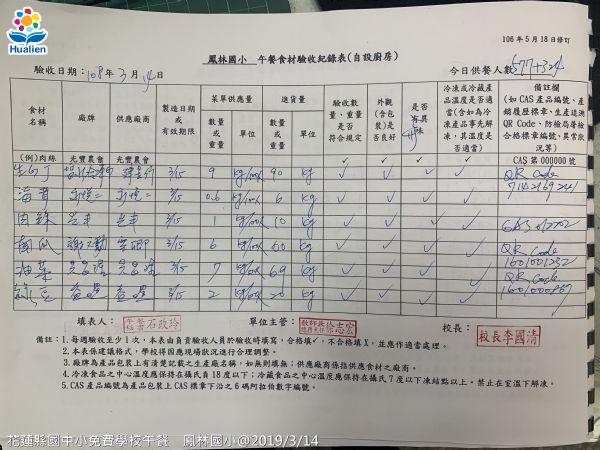 Hualien
106年5月18日修訂
鳳林國小 午餐食材驗收紀錄表(自設廚房)
驗收日期:108年3月14日
今日供餐人數577+324
食材名稱 廠牌 供應廠商 製造日期或有效期限 菜單供應量 進貨量 驗收數量、重量是否符合規定 外觀(含包裝)是否良好 是否有異味 冷凍或冷藏產品溫度是否適當(含如為冷凍產品事先解凍,其溫度是否適當) 備註欄(如CAS產品編號、產銷履歷標章、生產追溯QR Code、防檢局屠檢合格標章編號、異常狀況等)
數量或重量 單位 數量或重量 單位
(例)肉絲 光豐農會 光豐農會 ✓ ✓ ✓ ✓ CAS 第000000號
3/15 9 90 kg ✓ ✓ ✓ ✓ QR Code
3/15 0.6 6 kg ✓ ✓ ✓ ✓
肉絲 3/15 1 10 kg ✓ ✓ ✓ ✓
南瓜 3/15 6 60 kg ✓ ✓ ✓ ✓ QR Code
油菜 3/15 7 69 kg ✓ ✓ ✓ ✓ QR Code
綠豆 3/15 2 20 kg ✓ ✓ ✓ ✓
填表人: 午餐秘書石政玲 單位主管: 徐志宏 校長: 校長李國清
備註:1.每週驗收至少1次,本表由負責驗收人員於驗收時填寫,合格填✓,不合格填X,並應作適當處理。
2.本表係建議格式,學校得因應現場狀況進行合理調整。
3.廠牌為產品包裝上有清楚記載之生產廠名稱,如無則填無;供應廠商係指供應食材之廠商。
4.冷凍食品之中心溫度應保持在攝氏負18度以下;冷藏食品之中心溫度應保持在攝氏7度以下凍結點以上。禁止在室溫下解凍。
5.CAS產品編號為產品包裝上CAS標章下沿之6碼阿拉伯數字編號。
花蓮縣國中小免費學校午餐 鳳林國小@2019/3/14